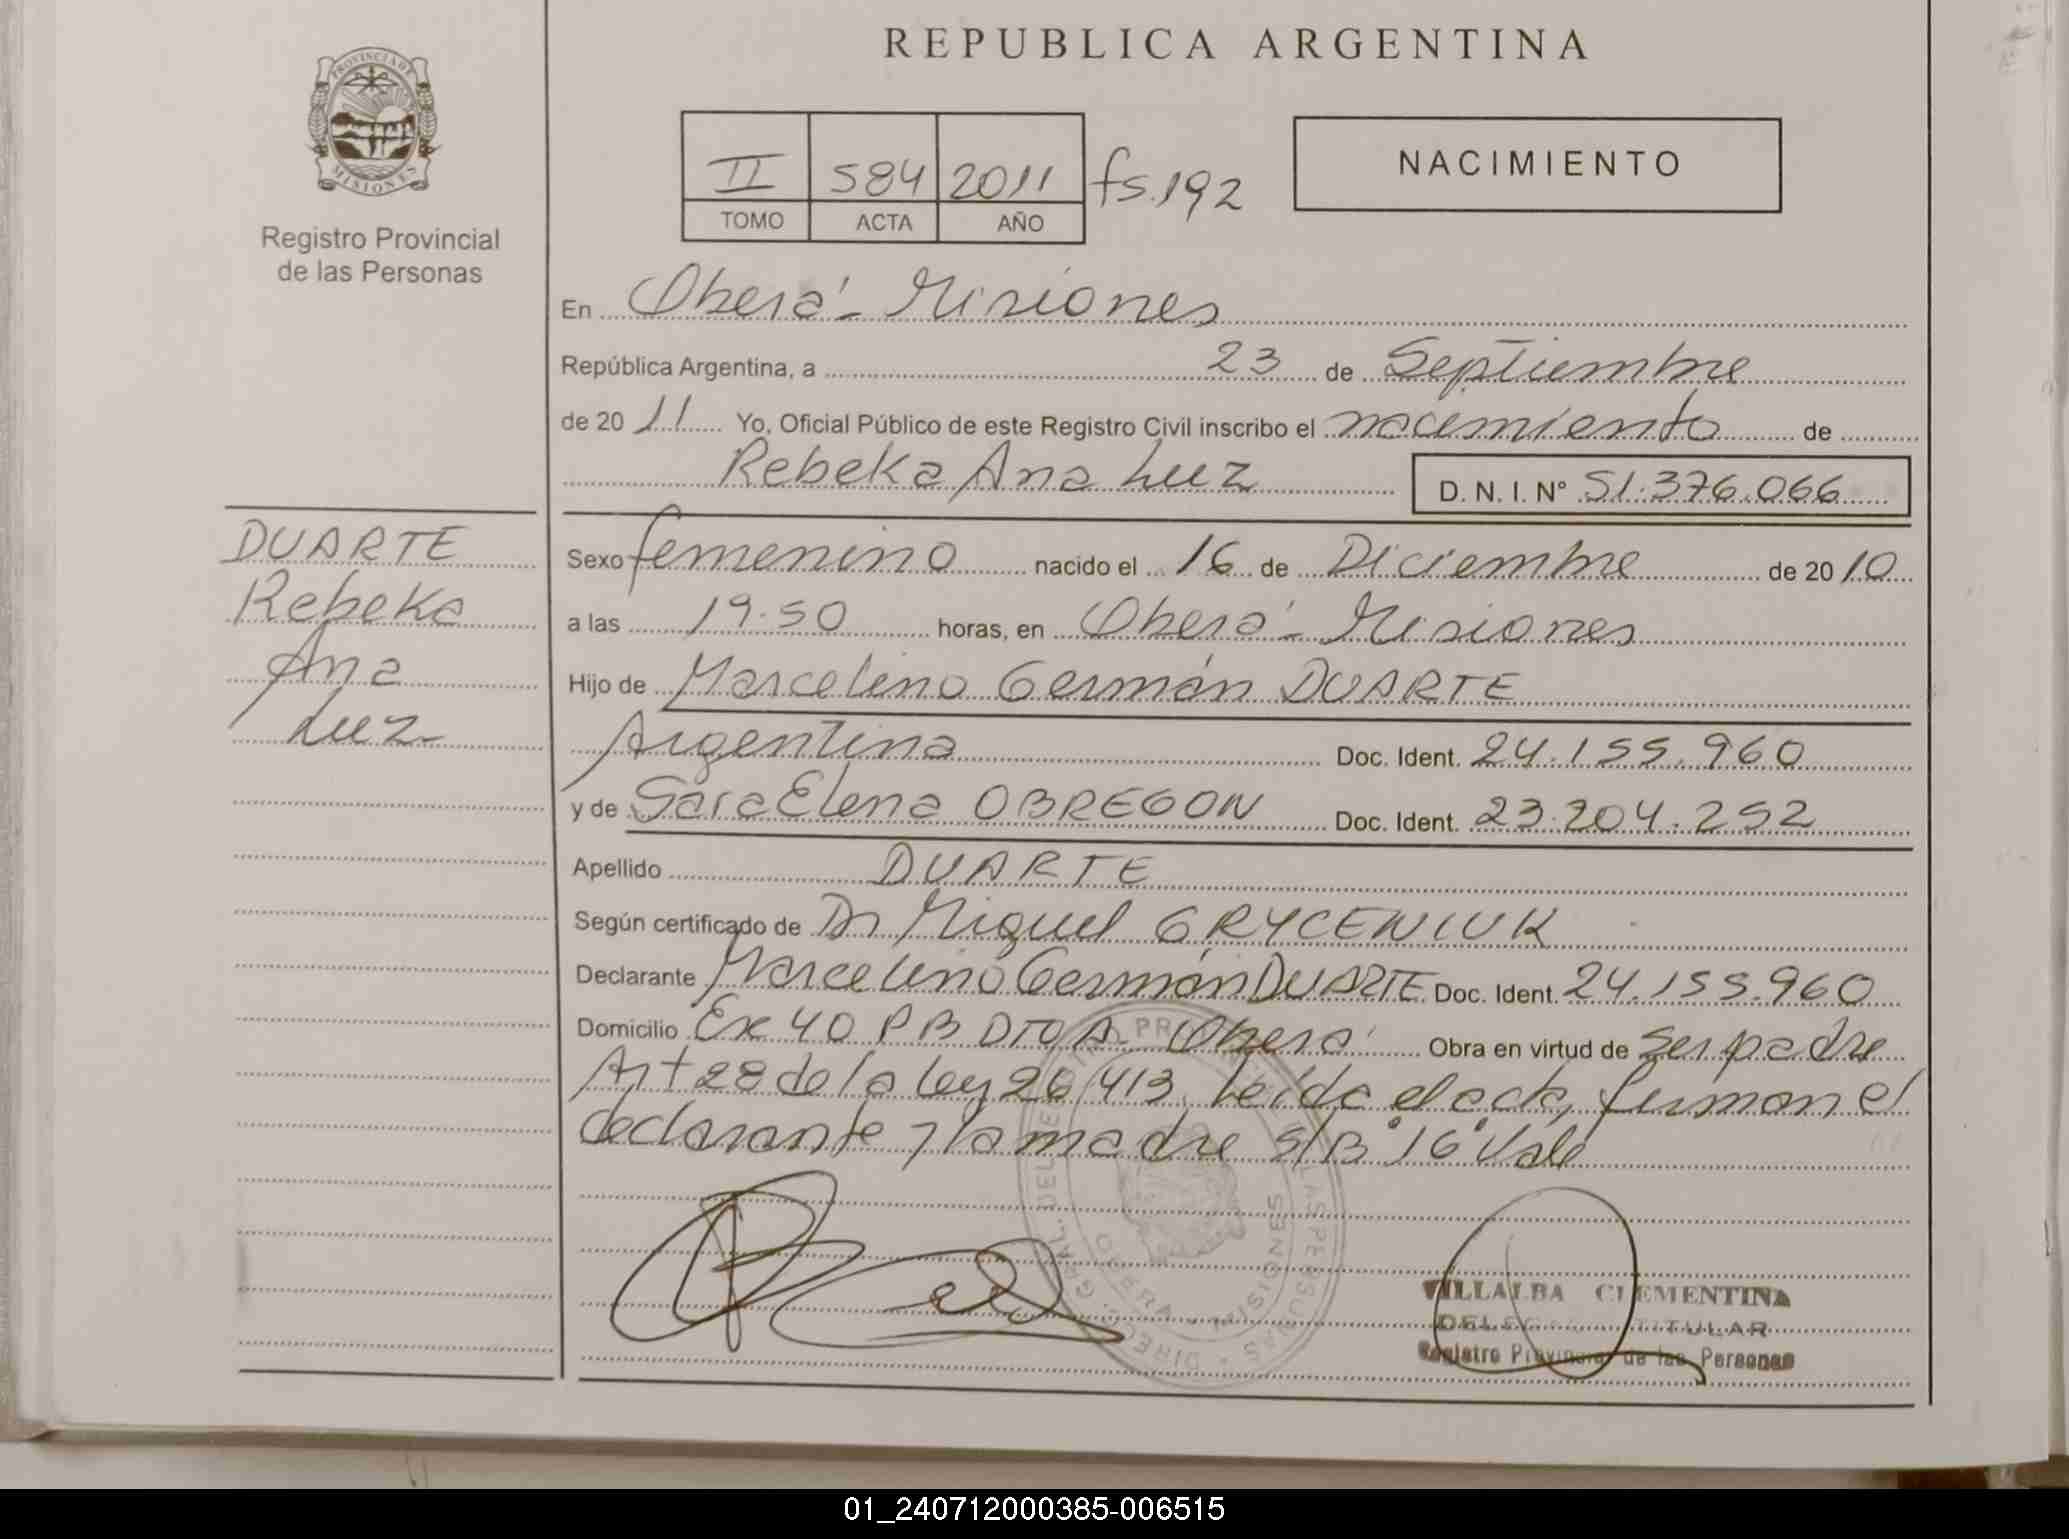 REPUBLICA ARGENTINA
PROVINCIA DE
MISIONES
Registro Provincial
de las Personas
II 584 2011 fs. 192
TOMO ACTA AÑO
NACIMIENTO
En Oberá - Misiones
República Argentina, a 23 de Septiembre
de 20 11 Yo, Oficial Público de este Registro Civil inscribo el nacimiento de
Rebeka Ana Luz D. N. I. N° 51.376.066
DUARTE
Rebeka
Ana
Luz
Sexo femenino nacido el 16 de Diciembre de 20 10
a las 19.50 horas, en Oberá - Misiones
Hijo de Marcelino Germán DUARTE
Argentina Doc. Ident. 24.155.960
y de Sara Elena OBREGON Doc. Ident. 23.204.252
Apellido DUARTE
Según certificado de Dr Miguel GRYCENIUK
Declarante Marcelino Germán DUARTE Doc. Ident. 24.155.960
Domicilio Ex 40 PB DTO A - Oberá Obra en virtud de ser padre
Art 28 de la Ley 26413. Leída el acta, firman el
declarante y la madre S/B "16" Vale
OBERA - MISIONES
VILLALBA CLEMENTINA
TITULAR
Registro Provincial de las Personas
01_240712000385-006515